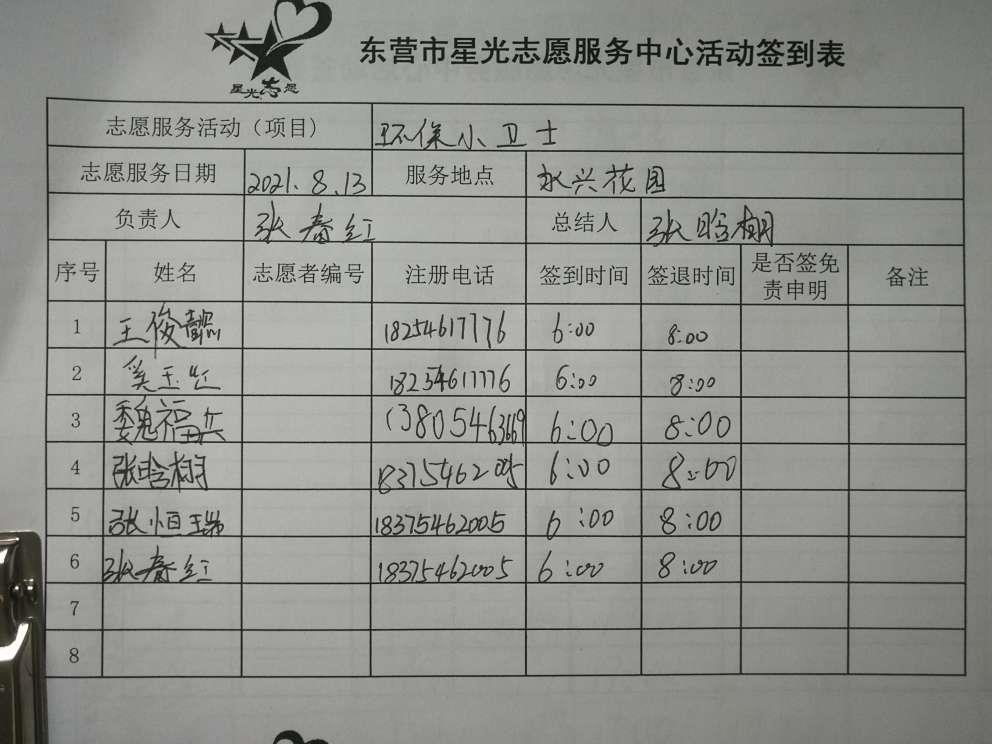 星光志愿
东营市星光志愿服务中心活动签到表
志愿服务活动（项目） 环保小卫士
志愿服务日期 2021.8.13 服务地点 永兴花园
负责人 张春红 总结人 张晗栩
序号 姓名 志愿者编号 注册电话 签到时间 签退时间 是否签免责申明 备注
1 王俊懿 18254617776 6:00 8:00
2 奚玉红 18254617776 6:00 8:00
3 魏福兵 13805463669 6:00 8:00
4 张晗栩 18375462005 6:00 8:00
5 张恒瑞 18375462005 6:00 8:00
6 张春红 18375462005 6:00 8:00
7
8